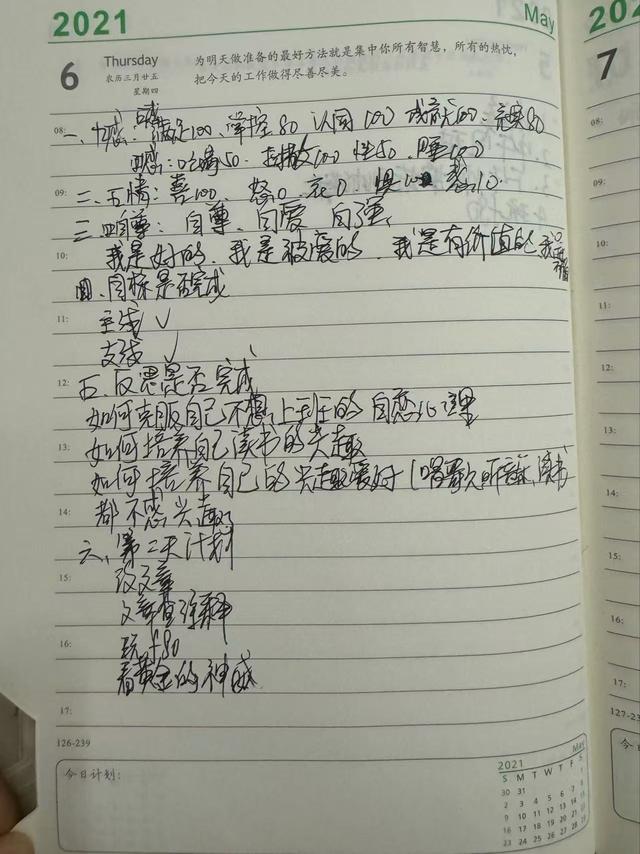 2021
May
202
6
Thursday
农历三月廿五
星期四
为明天做准备的最好方法就是集中你所有智慧，所有的热忱，
把今天的工作做得尽善尽美。
7
08:
一、十感：满足100、掌控80 认同100 成就100、
四感：吃喝50、100 性50、睡100
09:
二、五情：喜100、怒0 哀0 惧 10
三、四自尊：自尊、自爱 自强、
10:
我是好的、我是被爱的、我是有价值的
四、目标是否完成
11:
主线 ✓
支线 ✓
12:
五、反思是否完成
如何克服自己不想上班的自恋心理
13:
如何培养自己读书的兴趣
如何培养自己的兴趣爱好（唱歌听音乐、读书
14:
都不感兴趣
六、第二天计划
15:
改文章
文章查注释
16:
玩f80
看黄金的神威
17:
126-239
127-238
今日计划：
今日
2021 May
S M T W T F S
30 31 1
2 3 4 5 6 7 8
9 10 11 12 13 14 15
16 17 18 19 20 21 22
23 24 25 26 27 28 29